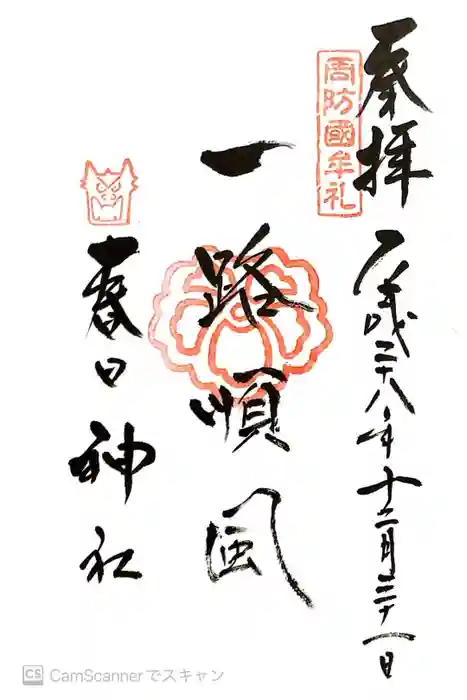 奉拝
周防國牟礼
平成二十八年十二月三十一日
一路順風
春日神社
CS CamScannerでスキャン